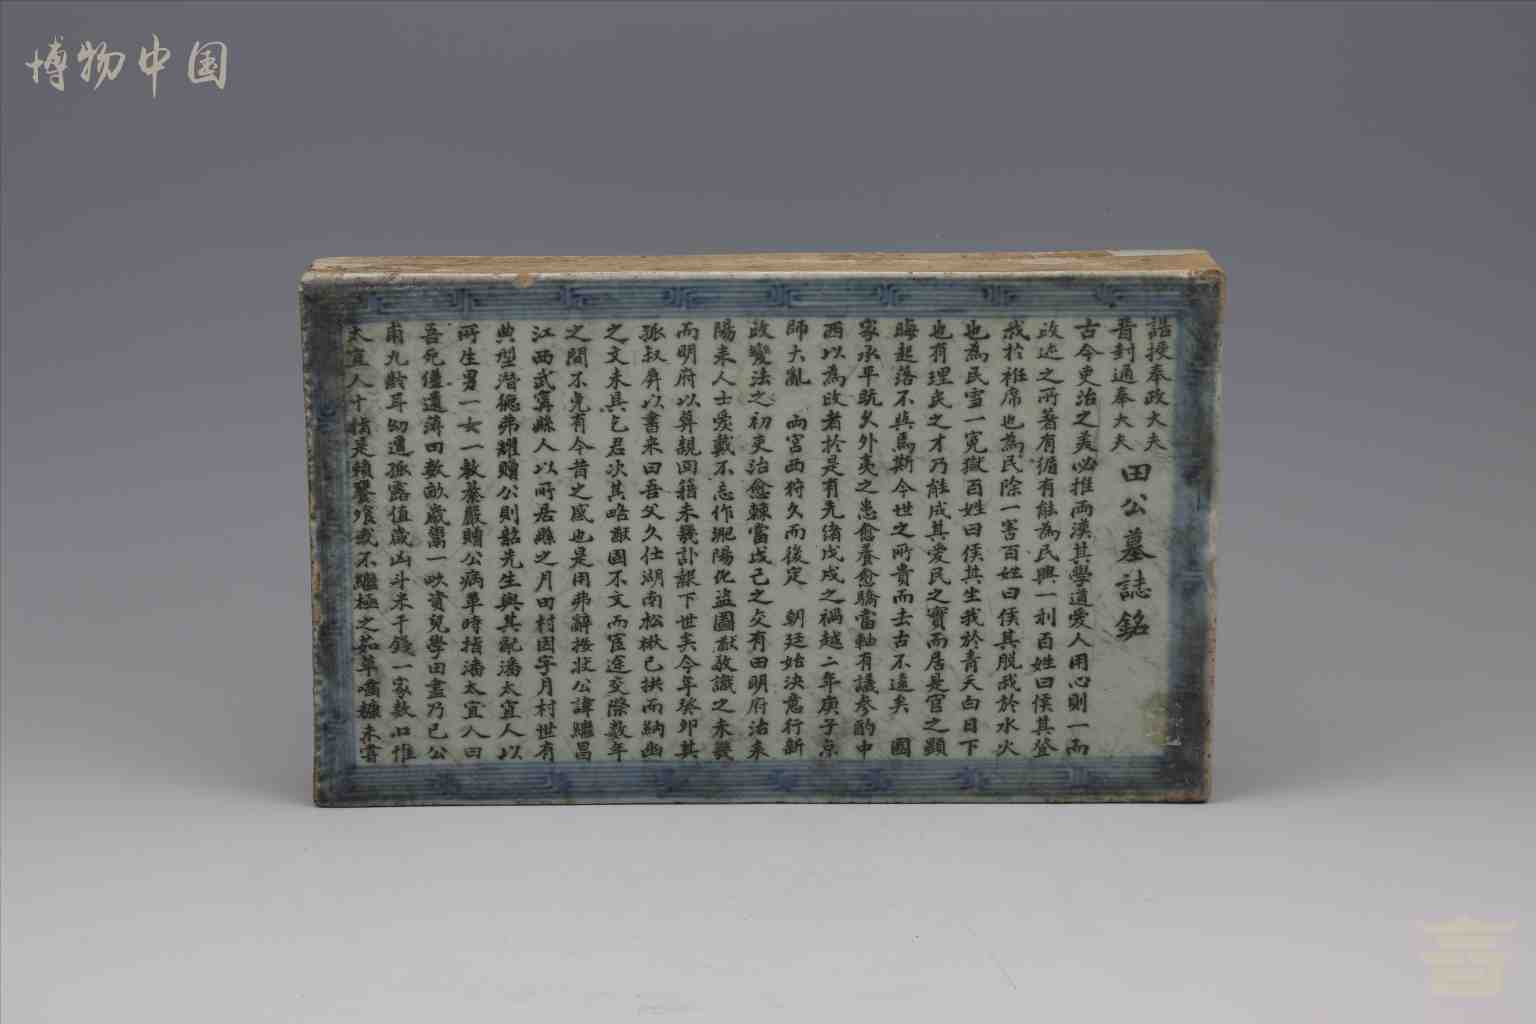 博物中国
誥授奉政大夫
晉封通奉大夫
田公墓誌銘
古今吏治之美必推兩漢其學道愛人用心則一而
政迹之所著有循有能為民興一利百姓曰侯其登
我於袵席也為民除一害百姓曰侯其脫我於水火
也為民雪一冤獄百姓曰侯其生我於青天白日下
也有理民之才乃能成其愛民之實而居是官之顯
晦起落不與焉斯今世之所貴而去古不遠矣 國
家承平既久外夷之患愈養愈驕當軸有議參酌中
西以為政者於是有光緒戊戌之禍越二年庚子京
師大亂 兩宮西狩久而後定 朝廷始決意行新
政變法之初吏治愈棘當戊己之交有田明府治耒
陽耒人士愛戴不忘作耒陽化盜圖猷敬識之未幾
而明府以算親回籍未幾訃報下世矣今年癸卯其
孤叔屏以書來曰吾父久仕湖南松楸已拱而納幽
之文未具乞君次其略猷固不文而宦途交際數年
之間不免有今昔之感也是用弗辭按狀公諱繼昌
江西武寧縣人以所居縣之月田村因字月村世有
典型潛德弗耀贈公則韶先生與其配潘太宜人以
所生男一女一教養嚴贈公病革時指潘太宜人曰
吾死僅遺薄田數畝歲鬻一畝資兒學田盡乃已公
甫九齡耳幼遭孤露值歲凶斗米千錢一家數口惟
太宜人十指是賴饔飧或不繼極之茹草噉糠未嘗